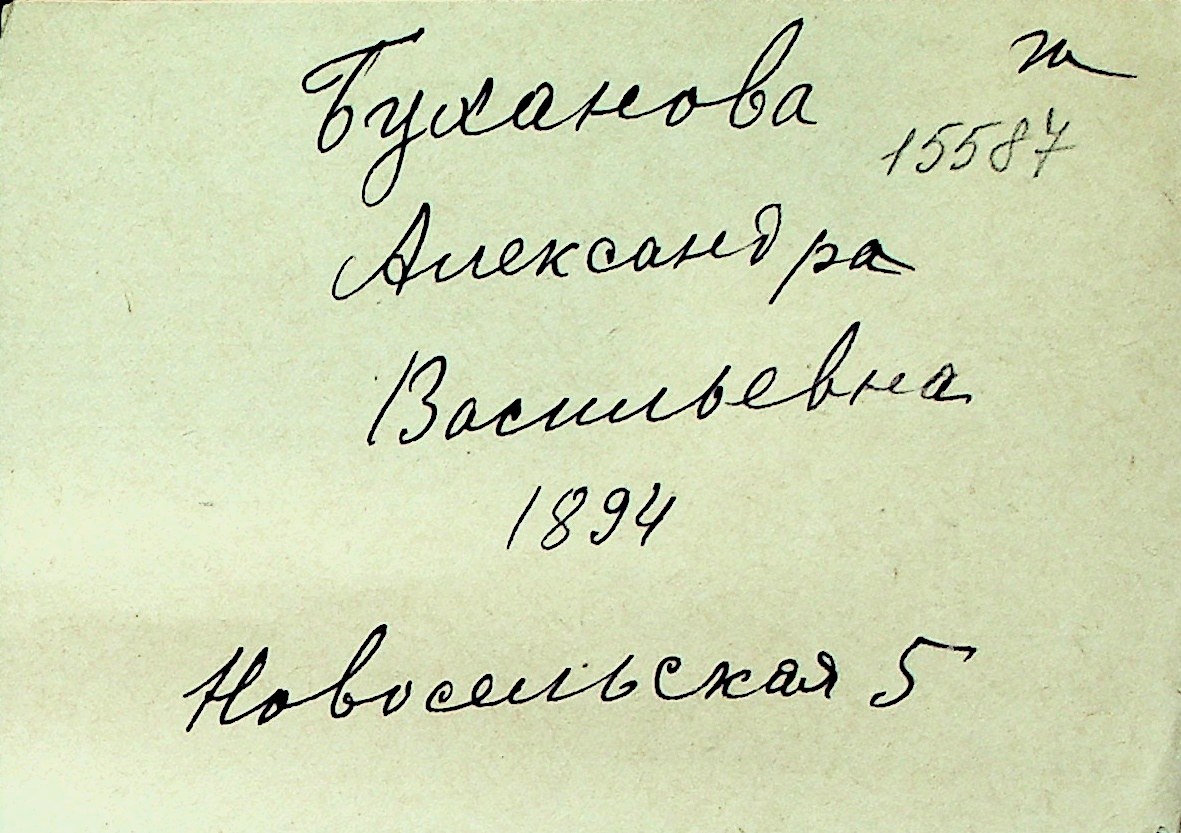 Буханова
15587
Александра
Васильевна
1894
Новосельская 5